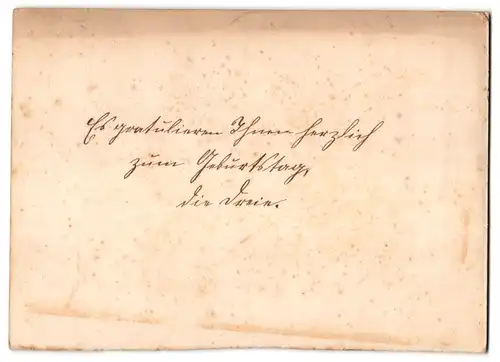 Es gratulieren Ihnen herzlich
zum Geburtstag,
die Dreie.